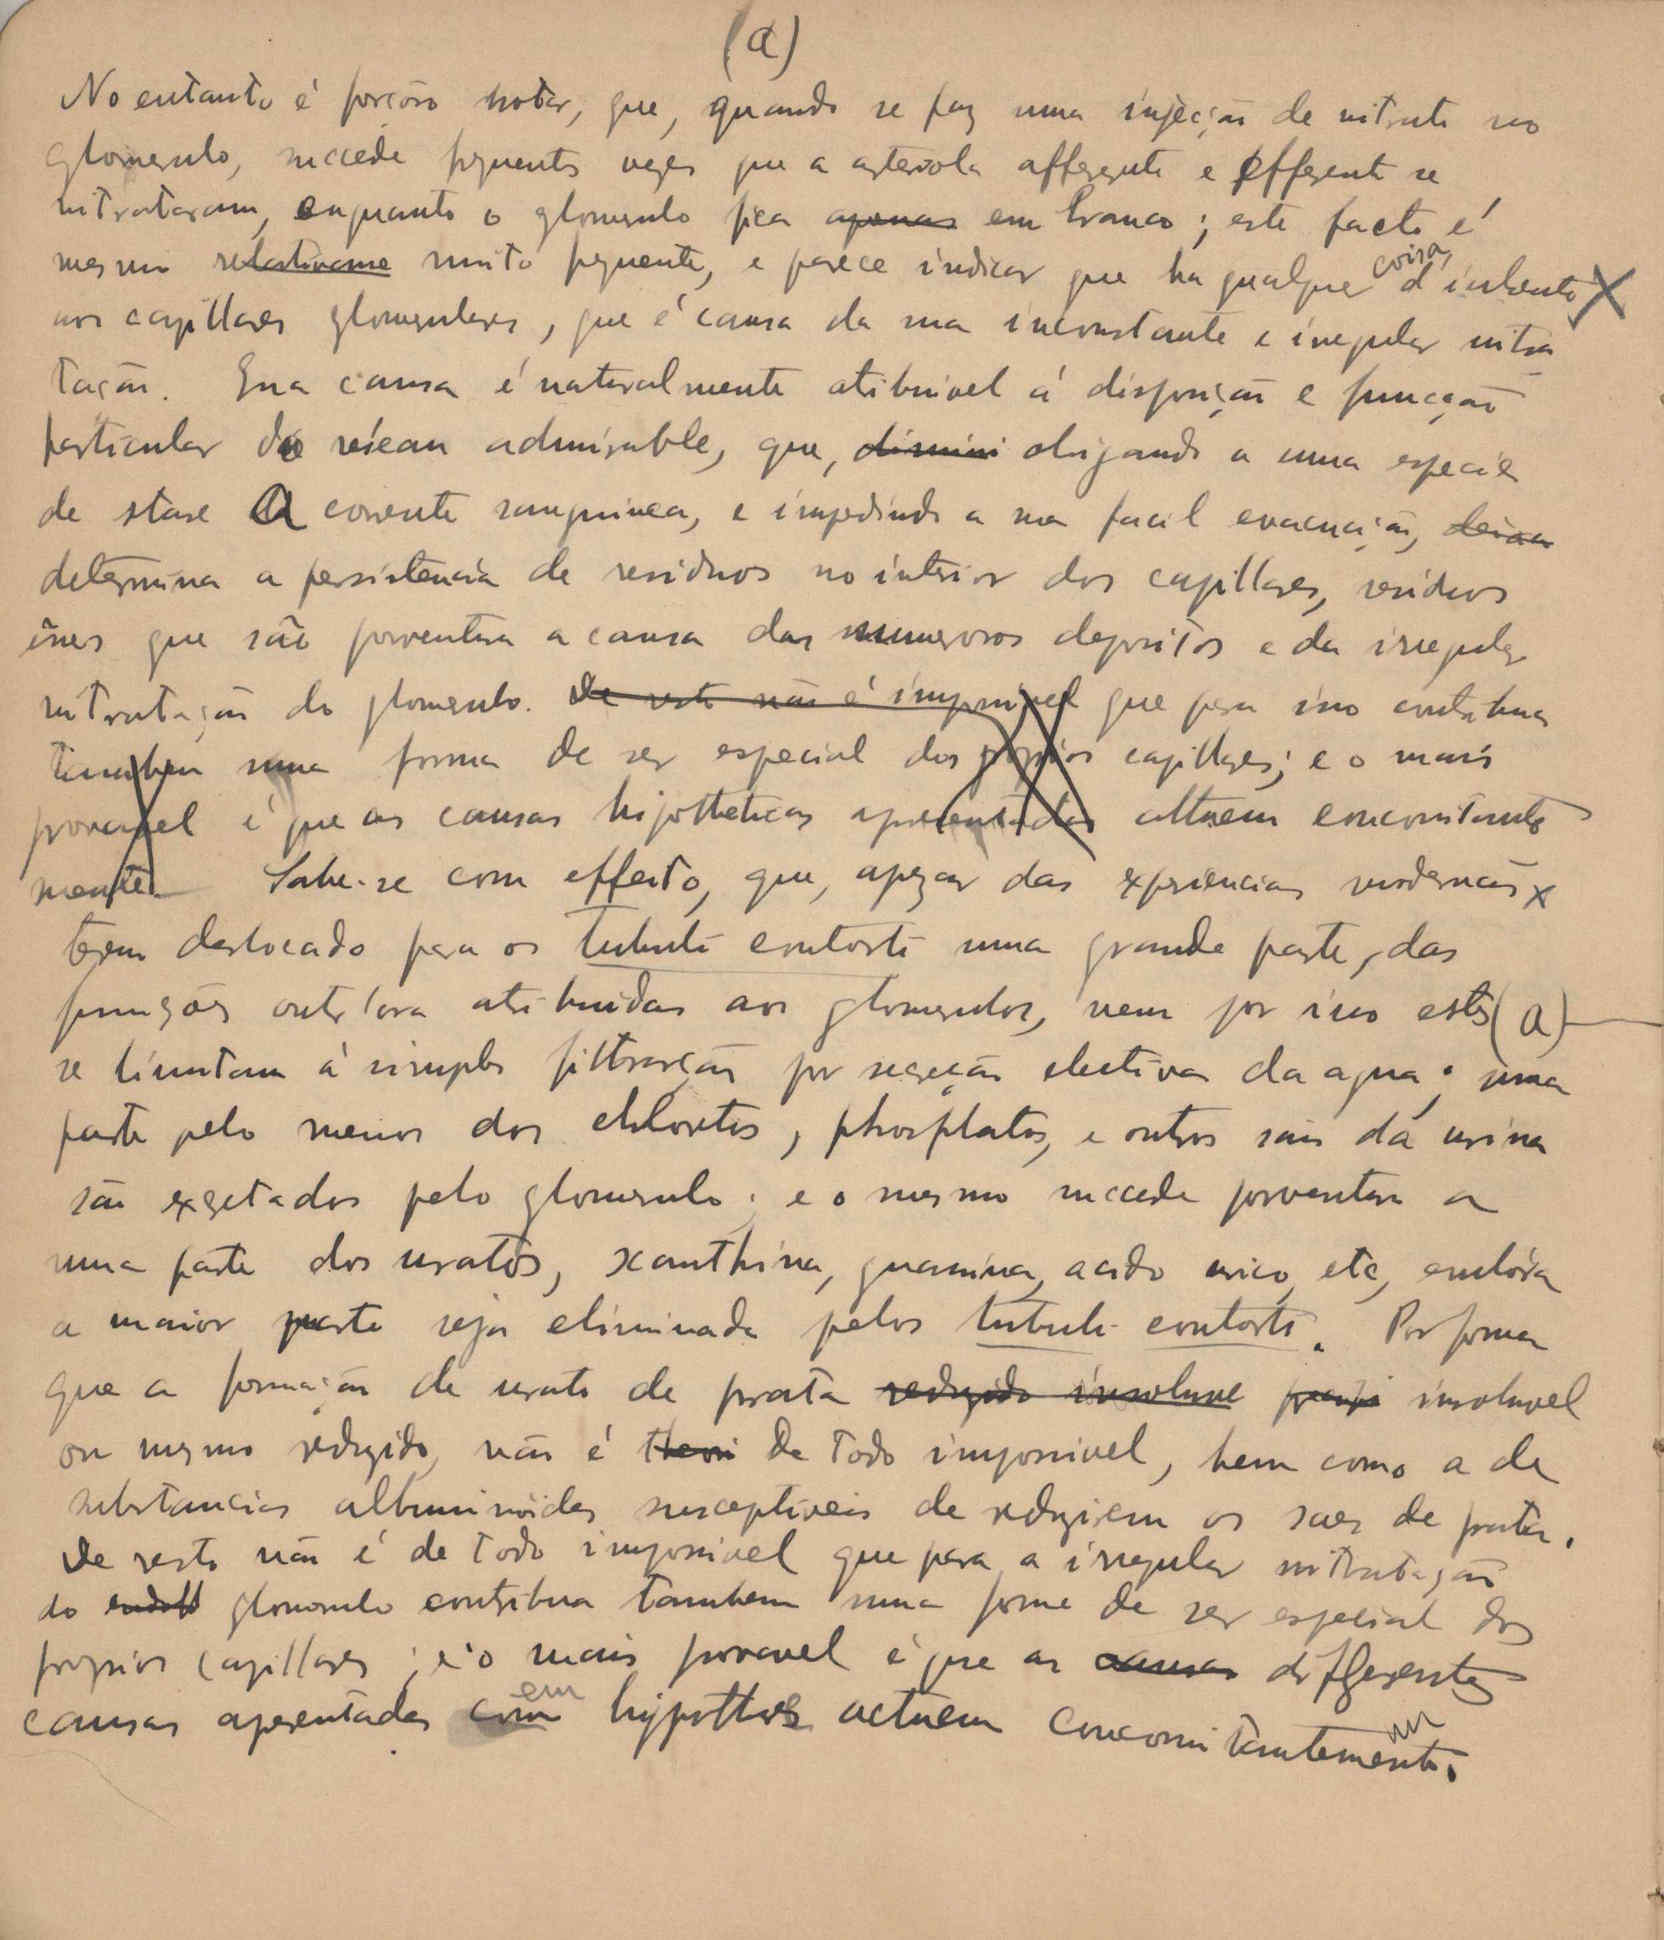 (a)
No entanto é forçoso notar, que, quando se faz uma injecção de nitrato no
glomerulo, succede frequentes vezes que a arteriola afferente e efferente se
nitrataram, enquanto o glomerulo fica apenas em branco; este facto é
mesmo relativame muito frequente, e parece indicar que ha qualquer coisa, d'inherente
aos capillares glomerulares, que é causa da sua inconstante e irregular nitra
tação. Essa causa é naturalmente atribuivel á disposição e funcção
particular do réseau admirable, que, diminui obrigando a uma especie
de stase a corrente sanguinea, e impedindo a sua facil evacuação, deixa
determina a persistencia de residuos no interior dos capillares, residuos
esses que são porventura a causa dos numerosos depositos e da irregular
nitratação do glomerulo. De resto não é impossivel que para isso contribua
tambem uma forma de ser especial dos proprios capillares; e o mais
provavel é que as causas hipotheticas apresentadas actuem concomitante
mente. Sabe-se com effeito, que, apezar das experiencias modernas
terem deslocado para os tubuli contorti uma grande parte, das
funções outr'ora atribuidas aos glomerulos, nem por isso estes (a)
se limitam á simples filtração por secreção electiva da agua; uma
parte pelo menos dos chloretos, phosphatos, e outros sais da urina
são excretados pelo glomerulo; e o mesmo succede porventura a
uma parte dos uratos, xanthina, guanina, acido urico, etc, embóra
a maior parte seja eliminada pelos tubuli contorti. Por forma
que a formação de urato de prata reduzido insoluve insoluvel
ou mesmo reduzido, não é theori de todo impossivel, bem como a de
substancias albuminóides susceptiveis de reduzirem os saes de prata.
De resto não é de todo impossivel que para a irregular nitratação
do glomerulo contribua tambem uma forma de ser especial dos
proprios capillares; e o mais provavel é que as causas differentes
causas apresentadas com em hypotheses actuem concomitantemente.